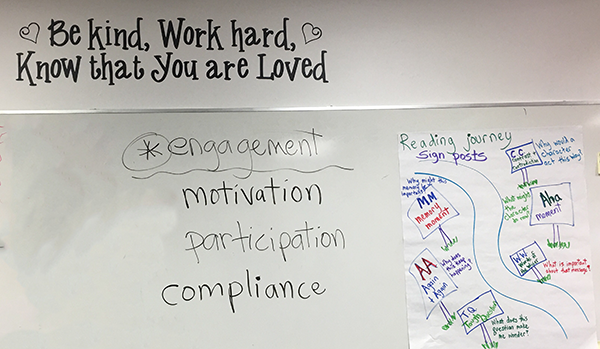 Be kind, Work hard,
Know that You are Loved
*engagement
motivation
participation
compliance
Reading journey
sign posts
C.C.
Why would a
character
act this way?
Why might this
memory be
important?
MM
memory
moment
What might
the
character
Aha
moment
AA
Again
Again
Why does
this keep
happening?
WW
What is important
about that message?
T.Q.
Tough
What does this
question make
me wonder?